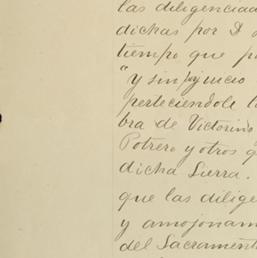 las diligencias
dichas por D
tiempo que p
"Y sin perjuicio
perteciendole l
bra de Victorino
Potrero y otros q
dicha Sierra.
que las dilige
y amojonam
del Sacrament